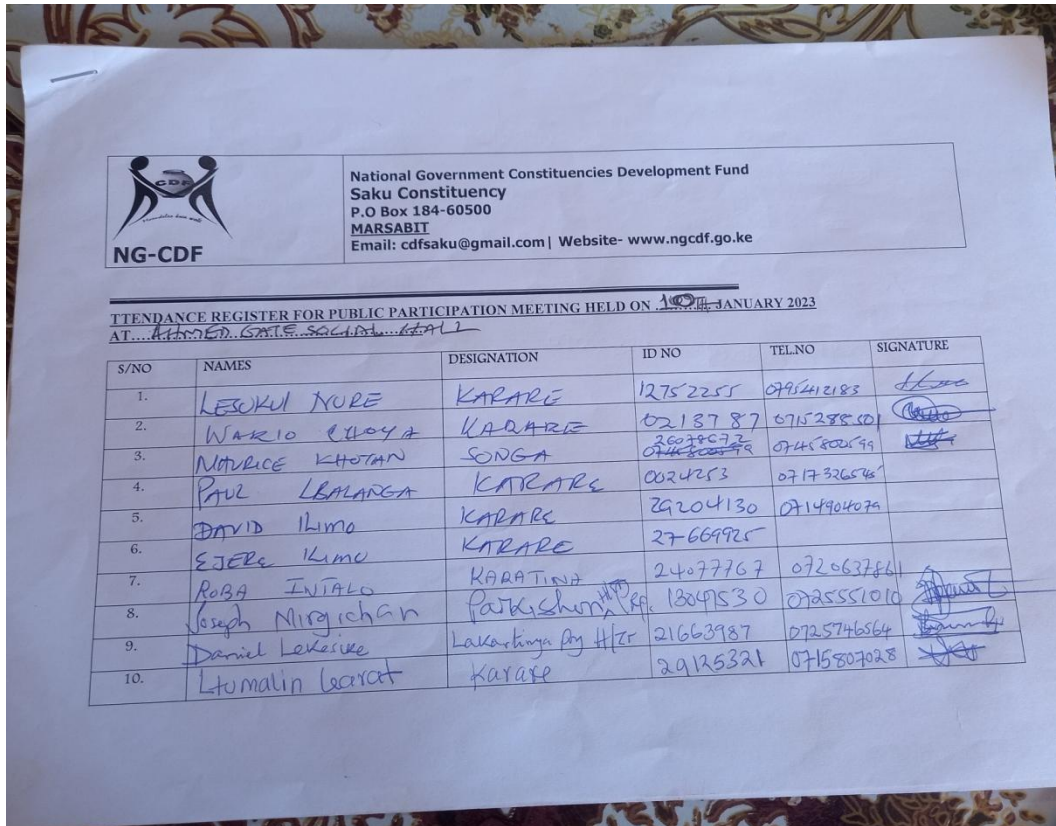 CDF
NG-CDF
National Government Constituencies Development Fund
Saku Constituency
P.O Box 184-60500
MARSABIT
Email: cdfsaku@gmail.com| Website- www.ngcdf.go.ke
TTENDANCE REGISTER FOR PUBLIC PARTICIPATION MEETING HELD ON JANUARY 2023
AT....AHMED GATE SOCIAL HALL
S/NO NAMES DESIGNATION ID NO TEL.NO SIGNATURE
1. LESUKUL NURE KARARE 12752255 0795412183
2. WARIO KARARE 0213787 0715288501
3. MAURICE KHOTAN SONGA 26078672 0745802599
4. PAUL LBALANGA KARARE 0024253 0717326545
5. DAVID ILIMO KARARE 29204130 0714904079
6. EJERE ILIMO KARARE 27669925
7. ROBA INTALO KARATINA 24077767 0720637861
8. Joseph Mirgichan 13091530 0725551010
9. Daniel Lekesike 21663987 0725746564
10. Ltumalin Karare 29125321 0715807028